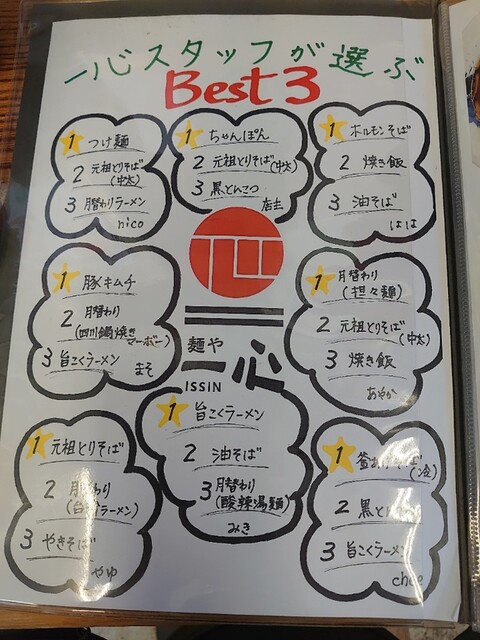 一心スタッフが選ぶ
Best 3
1 つけ麺
2 元祖とりそば
(中太)
3 月替わりラーメン
nico
1 ちゃんぽん
2 元祖とりそば(中太)
3 黒とんこつ
店主
1 ホルモンそば
2 焼き飯
3 油そば
はは
1 豚キムチ
2 月替わり
(四川鍋焼き
マーボー)
3 旨こくラーメン
まそ
麺や
一心
ISSIN
1 月替わり
(担々麺)
2 元祖とりそば
(中太)
3 焼き飯
あやか
1 元祖とりそば
2 月替わり
ラーメン)
3 やきそば
やゆ
1 旨こくラーメン
2 油そば
3 月替わり
(酸辣湯麺)
みき
1 釜
2 黒と
3 旨こくラーメン